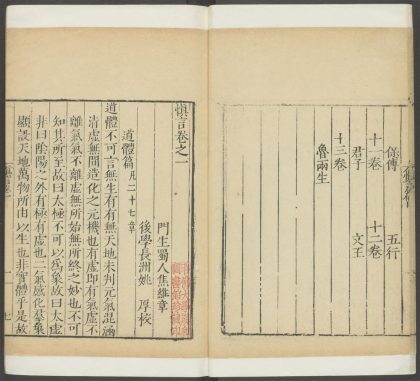 保傅 五行
十一卷 十二卷
君子 文王
十三卷
魯兩生
慎言卷之一
門生蜀人焦維章
後學長洲姚 厚校
道體篇凡二十七章
道體不可言無生有有無天地未判元氣混涵
清虛無間造化之元機也有虛即有氣虛不
離氣氣不離虛無所始無所終之妙也不可
知其所至故曰太極不可以爲象故曰太虛
非曰陰陽之外有極有虛也二氣感化羣象
顯設天地萬物所由以生也非實體乎是故